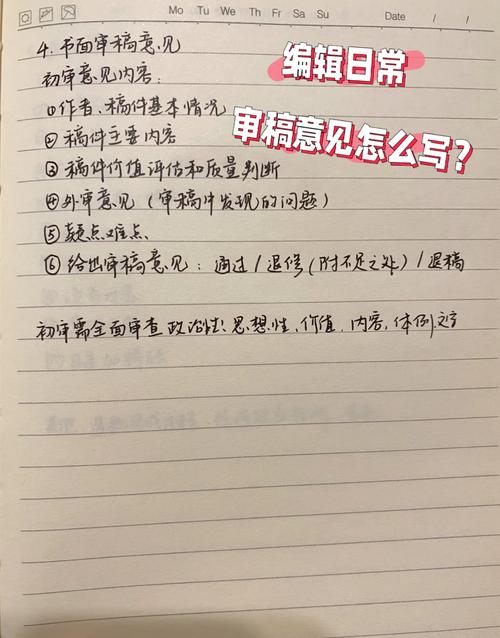 Mo Tu We Th Fr Sa Su Date / /
编辑日常
审稿意见怎么写?
4. 书面审稿意见
初审意见内容:
①作者、稿件基本情况
②稿件主要内容
③稿件价值评估和质量判断
④外审意见(审稿中发现的问题)
⑤疑点难点
⑥给出审稿意见:通过/退修(附不足之处)/退稿
初审需全面审查政治性、思想性、价值、内容、体例、文字